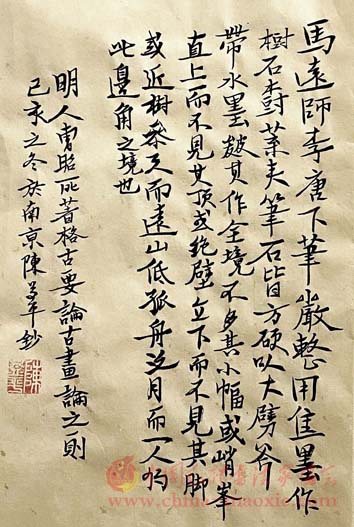 馬遠師李唐下筆嚴整用焦墨作
樹石樹葉夾筆石皆方硬以大劈斧
帶水墨皴其作全境不多其小幅或峭峯
直上而不見其頂或絶壁立下而不見其脚
或近樹參天而遠山低孤舟泛月而一人
此邊角之境也
明人曹昭所著格古要論古畫論之則
己亥之冬於南京陳平鈔